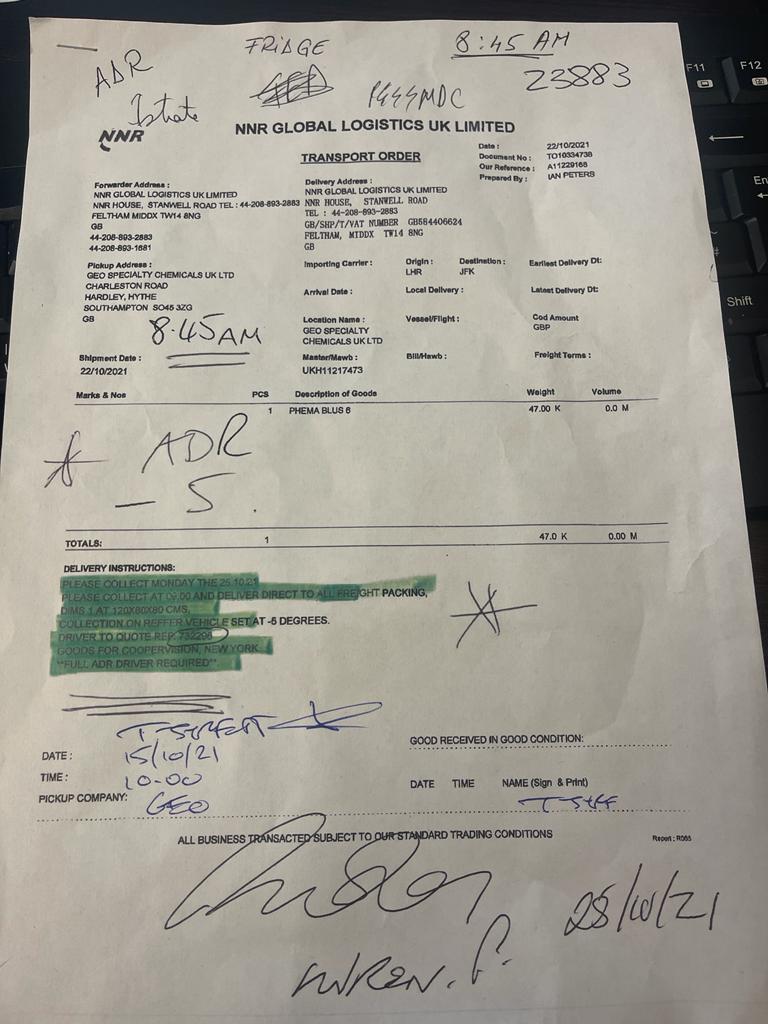 FRIDGE
8:45 AM
ADR
23883
Istrate
NNR
NNR GLOBAL LOGISTICS UK LIMITED
TRANSPORT ORDER
Date : 22/10/2021
Document No : TO10334738
Our Reference : A11229168
Prepared By : IAN PETERS
Forwarder Address :
NNR GLOBAL LOGISTICS UK LIMITED
NNR HOUSE, STANWELL ROAD TEL : 44-208-893-2883
FELTHAM MIDDX TW14 8NG
GB
44-208-893-2883
44-208-893-1681
Delivery Address :
NNR GLOBAL LOGISTICS UK LIMITED
NNR HOUSE, STANWELL ROAD
TEL : 44-208-893-2883
GB/SHP/T/VAT NUMBER GB584406624
FELTHAM, MIDDX TW14 8NG
GB
Pickup Address :
GEO SPECIALTY CHEMICALS UK LTD
CHARLESTON ROAD
HARDLEY, HYTHE
SOUTHAMPTON SO45 3ZG
GB
8.45AM
Importing Carrier : Origin : Destination : Earliest Delivery Dt:
LHR JFK
Arrival Date : Local Delivery : Latest Delivery Dt:
Location Name : Vessel/Flight : Cod Amount
GEO SPECIALTY GBP
CHEMICALS UK LTD
Shipment Date : Master/Mawb : Bill/Hawb : Freight Terms :
22/10/2021 UKH11217473
Marks & Nos PCS Description of Goods Weight Volume
1 PHEMA BLUS 6 47.00 K 0.0 M
ADR
- 5
TOTALS: 1 47.0 K 0.00 M
DELIVERY INSTRUCTIONS:
PLEASE COLLECT MONDAY THE 25.10.21
PLEASE COLLECT AT 09.00 AND DELIVER DIRECT TO ALL FREIGHT PACKING,
DIMS 1 AT 120X80X80 CMS,
COLLECTION ON REFFER VEHICLE SET AT -5 DEGREES.
DRIVER TO QUOTE REF: 732298
GOODS FOR COOPERVISION, NEW YORK
**FULL ADR DRIVER REQUIRED**
GOOD RECEIVED IN GOOD CONDITION:
DATE : 15/10/21
TIME : 10-00
PICKUP COMPANY: GEO
DATE TIME NAME (Sign & Print)
ALL BUSINESS TRANSACTED SUBJECT TO OUR STANDARD TRADING CONDITIONS
Report : R065
25/10/21